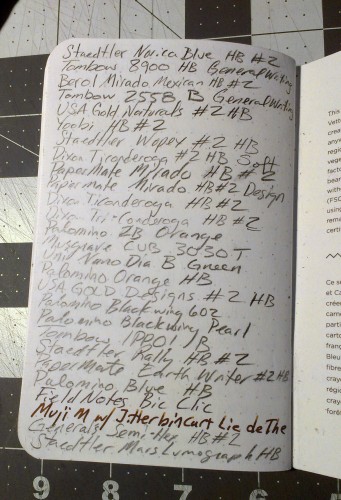 Staedtler Norica Blue HB #2
Tombow 8900 HB General Writing
Berol Mirado Mexican HB #2
Tombow 2558 B General Writing
USA Gold Naturals #2 HB
Yoobi HB #2
Staedtler Wopex #2 HB
Dixon Ticonderoga #2 HB Soft
PaperMate Mirado HB #2
Papermate Mirado HB #2 Design
Dixon Ticonderoga HB #2
Dixon Tri-Conderoga HB #2
Palomino 2B Orange
Musgrave CUB 3030T
Uni Nano Dia B Green
Palomino Orange HB
USA GOLD Designs #2 HB
Palomino Blackwing 602
Palomino Blackwing Pearl
Tombow
Staedtler Rally HB #2
PaperMate Earth Writer #2 HB
Palomino Blue HB
Field Notes Bic Clic
Muji M w/ J. Herbin Lie de The
Generals Semi-Hex HB #2
Staedtler Mars Lumograph HB
9 8 7 6 5